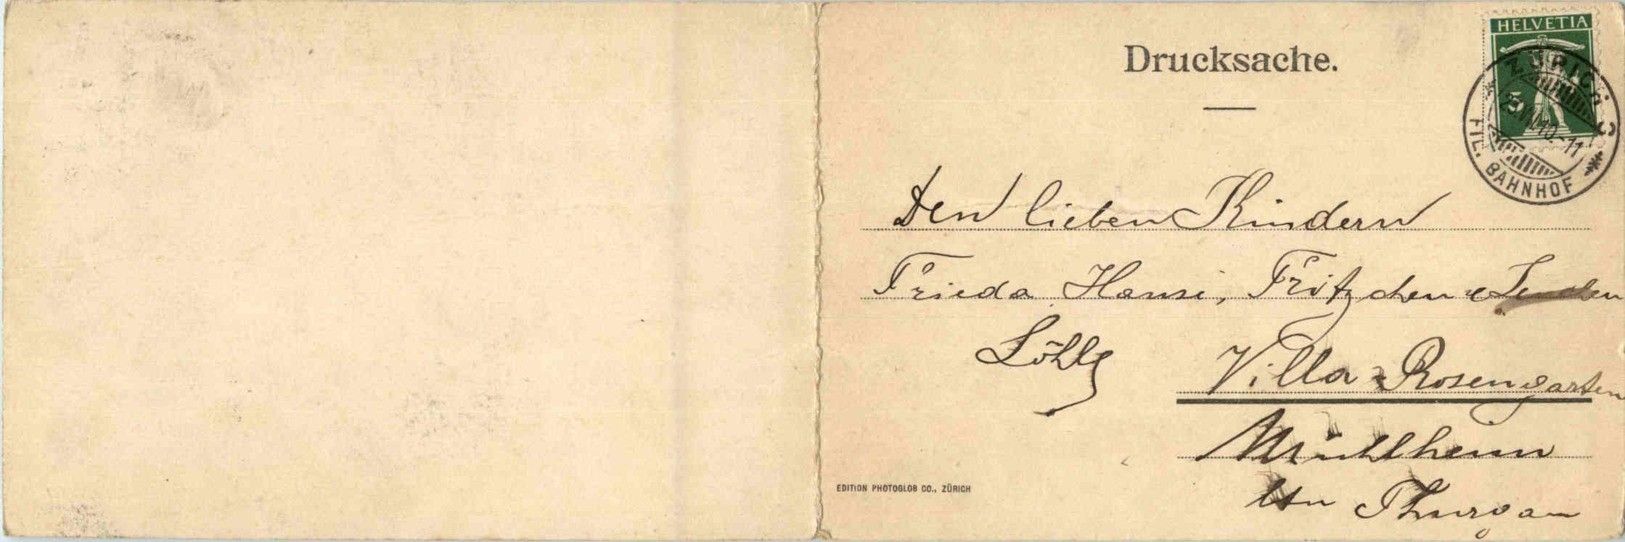 Drucksache.
HELVETIA
5
ZÜRICH
10-11
FIL. BAHNHOF
Den lieben Kindern
Frieda, Hansi, Fritzchen &
Villa Rosengarten
Müllheim
Ktn Thurgau
EDITION PHOTOGLOB CO., ZÜRICH